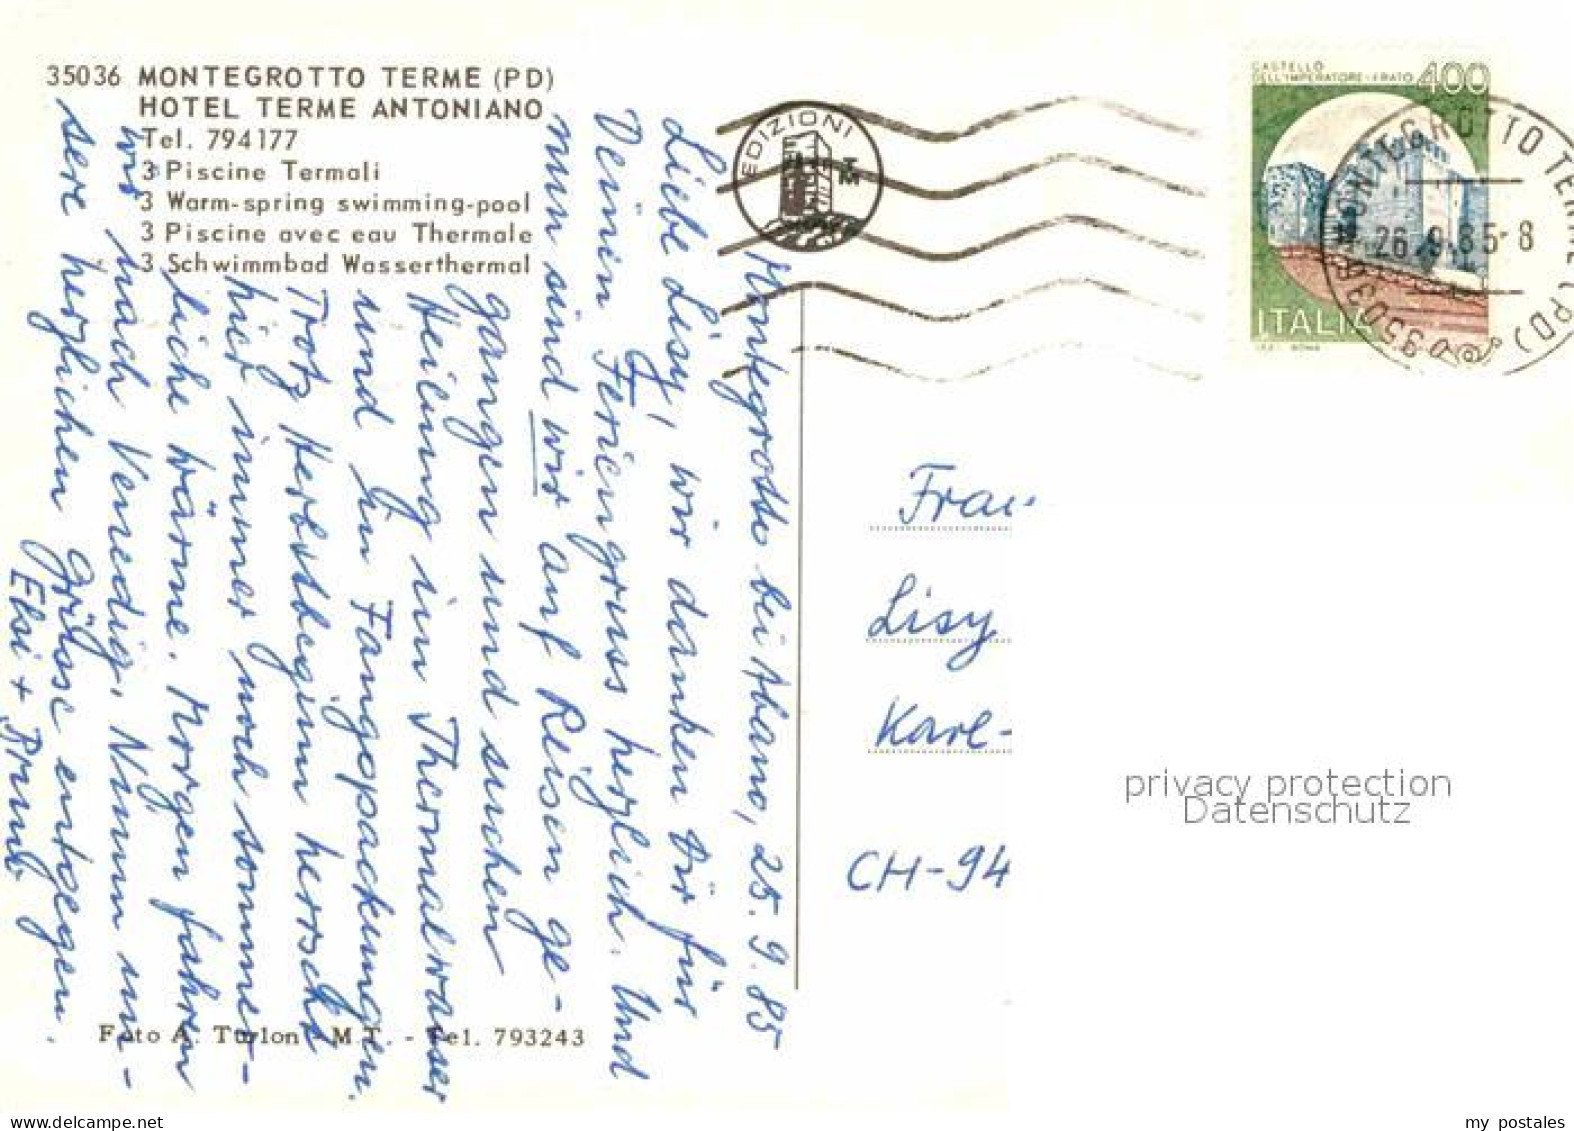 35036 MONTEGROTTO TERME (PD)
HOTEL TERME ANTONIANO
Tel. 794177
3 Piscine Termali
3 Warm-spring swimming-pool
3 Piscine avec eau Thermale
3 Schwimmbad Wasserthermal
EDIZIONI
TM
CASTELLO
DELL'IMPERATORE - PRATO
400
ITALIA
I.P.Z.S. ROMA
MONTEGROTTO TERME (PD)
26.9.85-8
35036
Montegrotto bei Abano, 25.9.85
Liebe Lisy, wir danken Dir für
Deinen Feriengruss herzlich. Und
nun sind wir auf Reisen ge-
gangen und suchen
Heilung im Thermalwasser
und in Fangopackungen.
Trotz Herbstbeginn herrscht
hier immer noch sommer-
liche Wärme. Morgen fahren
wir nach Venedig. Nimm un-
sere herzlichen Grüsse entgegen.
Elsi + Bruno
Frau
Lisy
Karl-
CH-94
privacy protection
Datenschutz
Foto A. Turlon - M.T. - Tel. 793243
my postales